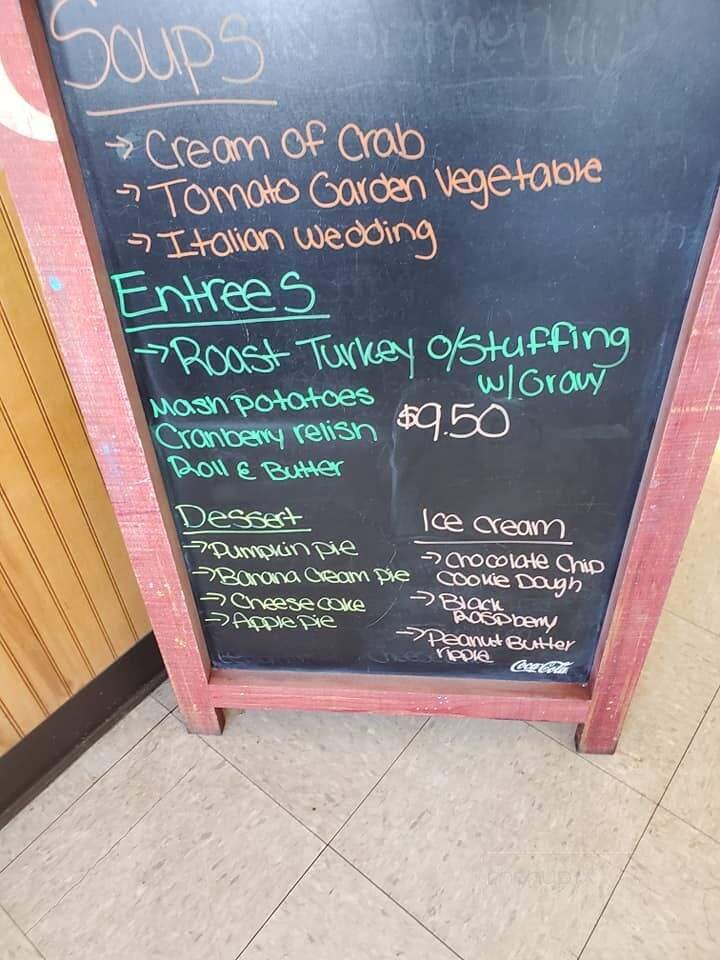 Soups
→ Cream of Crab
→ Tomato Garden Vegetable
→ Italian Wedding
Entrees
→ Roast Turkey o/Stuffing
w/Gravy
Mash potatoes
Cranberry relish $9.50
Roll & Butter
Dessert
→ Pumpkin pie
→ Banana Cream Pie
→ Cheesecake
→ Apple Pie
Ice cream
→ Chocolate Chip
Cookie Dough
→ Black
Raspberry
→ Peanut Butter
ripple
Coca-Cola